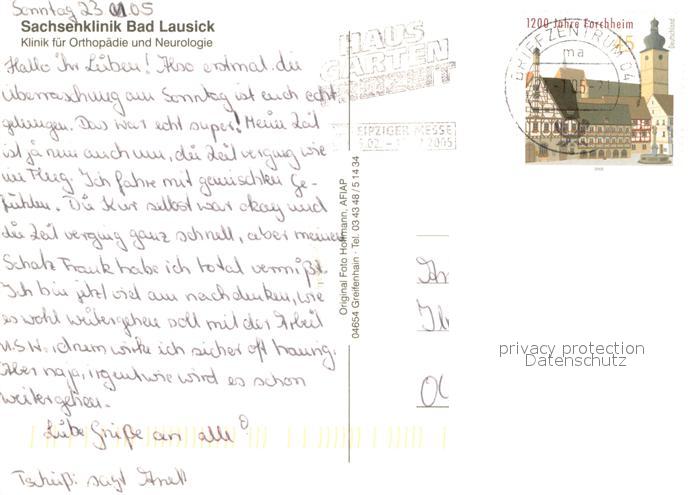 Sonntag 23.01.05
Sachsenklinik Bad Lausick
Klinik für Orthopädie und Neurologie
Hallo ihr Lieben! Also erstmal die
Überraschung am Sonntag ist euch echt
gelungen. Das war echt super! Meine Zeit
ist ja nun auch um, die Zeit verging wie
im Flug. Ich fahre mit gemischten Ge-
fühlen. Die Kur selbst war okay und
die Zeit verging ganz schnell, aber meinen
Schatz Frank habe ich total vermißt.
Ich bin jetzt viel am nachdenken, wie
es wohl weitergehen soll mit der Arbeit
u.s.w. drum wirke ich sicher oft traurig.
Aber naja, irgentwie wird es schon
weitergehen.
Liebe Grüße an alle
Tschüß: sagt Anett
Original Foto Hoffmann, AFIAP
04654 Greifenhain · Tel. 03 43 48 / 5 14 34
HAUS
GARTEN
FREIZEIT
LEIPZIGER MESSE
2005
1200 Jahre Forchheim
45
Deutschland
BRIEFZENTRUM 04
ma
An
privacy protection
Datenschutz